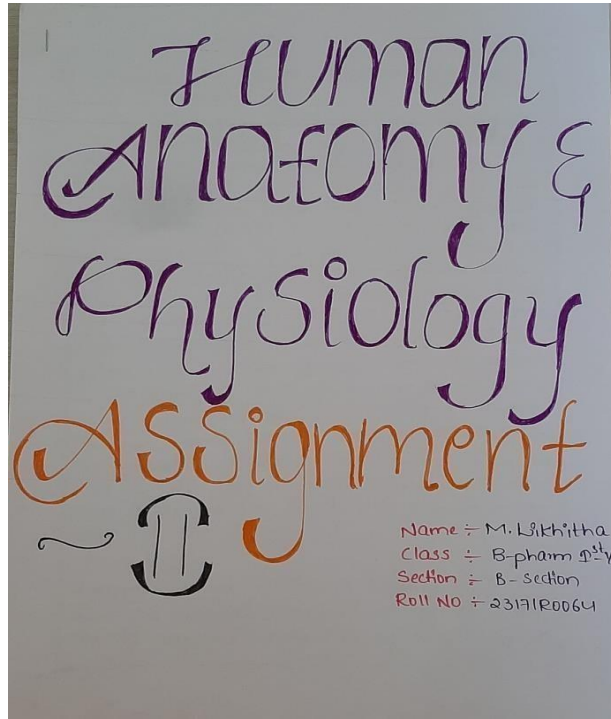 Human
Anatomy &
Physiology
Assignment
~ II
Name ÷ M. Likhitha
Class ÷ B-pharm Ist y
Section ÷ B-section
Roll No ÷ 23171R0064